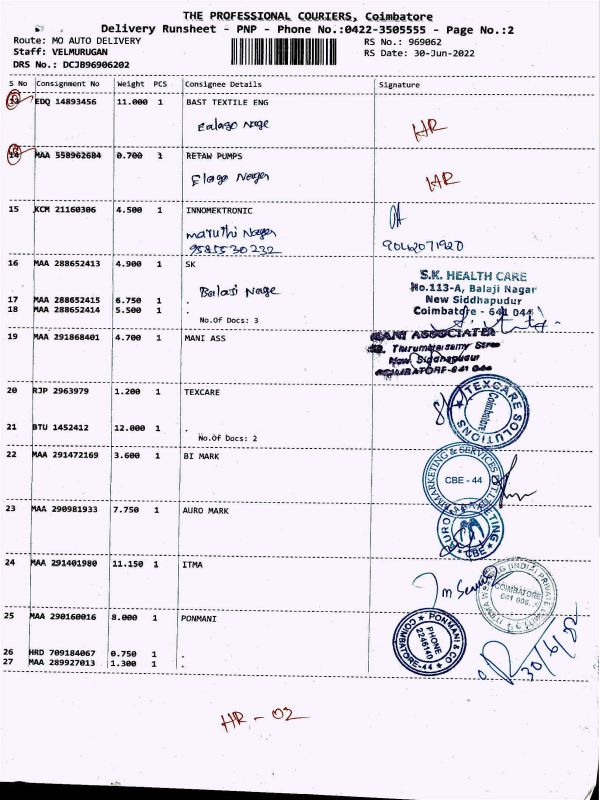 THE PROFESSIONAL COURIERS, Coimbatore
Delivery Runsheet - PNP - Phone No.:0422-3505555 - Page No.:2
Route: MO AUTO DELIVERY
RS No.: 969062
Staff: VELMURUGAN
RS Date: 30-Jun-2022
DRS No.: DCJB96906202
S No Consignment No Weight PCS Consignee Details Signature
13 EDQ 14893456 11.000 1 BAST TEXTILE ENG
HR
14 MAA 550962684 0.700 1 RETAW PUMPS
Elago Nager
HR
15 KCM 21160306 4.500 1 INNOMEKTRONIC
maruthi Nager
9585530232
9042071920
16 MAA 288652413 4.900 1 SK
Balaji Nage
S.K. HEALTH CARE
No.113-A, Balaji Nagar
New Siddhapudur
Coimbatore - 641 044
17 MAA 288652415 6.750 1 .
18 MAA 288652414 5.500 1 .
No.Of Docs: 3
19 MAA 291868401 4.700 1 MANI ASS
MANI ASSOCIATES
New Siddhapudur
COIMBATORE-641 044
20 RJP 2963979 1.200 1 TEXCARE
TEXCARE SOLUTIONS
Coimbatore
21 BTU 1452412 12.000 1 .
No.Of Docs: 2
22 MAA 291472169 3.600 1 BI MARK
CBE - 44
23 MAA 290981933 7.750 1 AURO MARK
CBE
24 MAA 291401980 11.150 1 ITMA
COIMBATORE
25 MAA 290160016 8.000 1 PONMANI
PONMANI & CO
PHONE
2246140
COIMBATORE-44
30/6/22
26 HRD 709184067 0.750 1 .
27 MAA 289927013 1.300 1 .
HR - 02